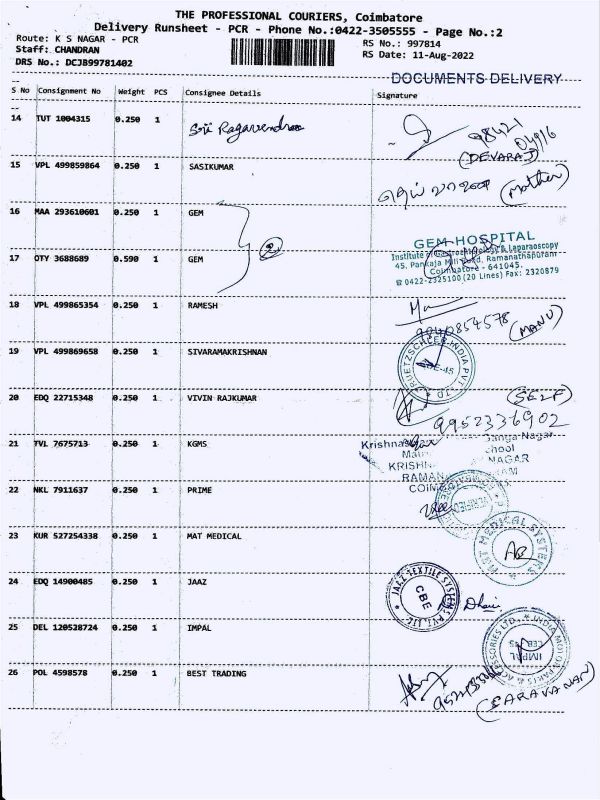 THE PROFESSIONAL COURIERS, Coimbatore
Delivery Runsheet - PCR - Phone No.:0422-3505555 - Page No.:2
Route: K S NAGAR - PCR
RS No.: 997814
Staff: CHANDRAN
RS Date: 11-Aug-2022
DRS No.: DCJB99781402
DOCUMENTS DELIVERY
S No Consignment No Weight PCS Consignee Details Signature
14 TUT 1004315 0.250 1 Sri Ragavendra
98421 04916
(DEVARAJ)
15 VPL 499859864 0.250 1 SASIKUMAR
(Mother)
16 MAA 293610601 0.250 1 GEM
GEM HOSPITAL
Institute of Gastroenterology & Laparaoscopy
45, Pankaja Mill Road, Ramanathapuram
Coimbatore - 641045.
☎ 0422-2325100 (20 Lines) Fax: 2320879
17 OTY 3688689 0.590 1 GEM
18 VPL 499865354 0.250 1 RAMESH
9840854578 (MANU)
19 VPL 499869658 0.250 1 SIVARAMAKRISHNAN
TRUETZSCHLER INDIA PVT LTD
CBE-45
20 EDQ 22715348 0.250 1 VIVIN RAJKUMAR
(SELF)
9952336902
21 TVL 7675713 0.250 1 KGMS
Ganga Nagar
School
NAGAR
COIMBA
22 NKL 7911637 0.250 1 PRIME
23 KUR 527254338 0.250 1 MAT MEDICAL
MAT MEDICAL SYSTEMS
24 EDQ 14900485 0.250 1 JAAZ
JAAZ TEXTILE SYSTEMS PVT. LTD.
CBE
25 DEL 120528724 0.250 1 IMPAL
INDIA MOTOR PARTS & ACCESSORIES LTD.
IMPAL
26 POL 4598578 0.250 1 BEST TRADING
(SARAVANAN)